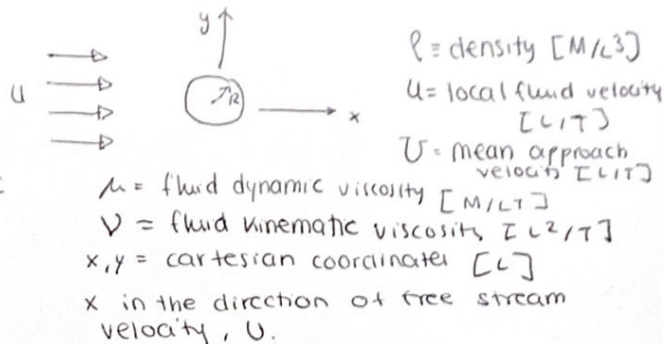 y
U
R
x
ρ ≡ density [M/L³]
u = local fluid velocity
[L/T]
U = mean approach
velocity [L/T]
μ = fluid dynamic viscosity [M/LT]
ν = fluid kinematic viscosity [L²/T]
x, y = cartesian coordinates [L]
x in the direction of free stream
velocity, U.